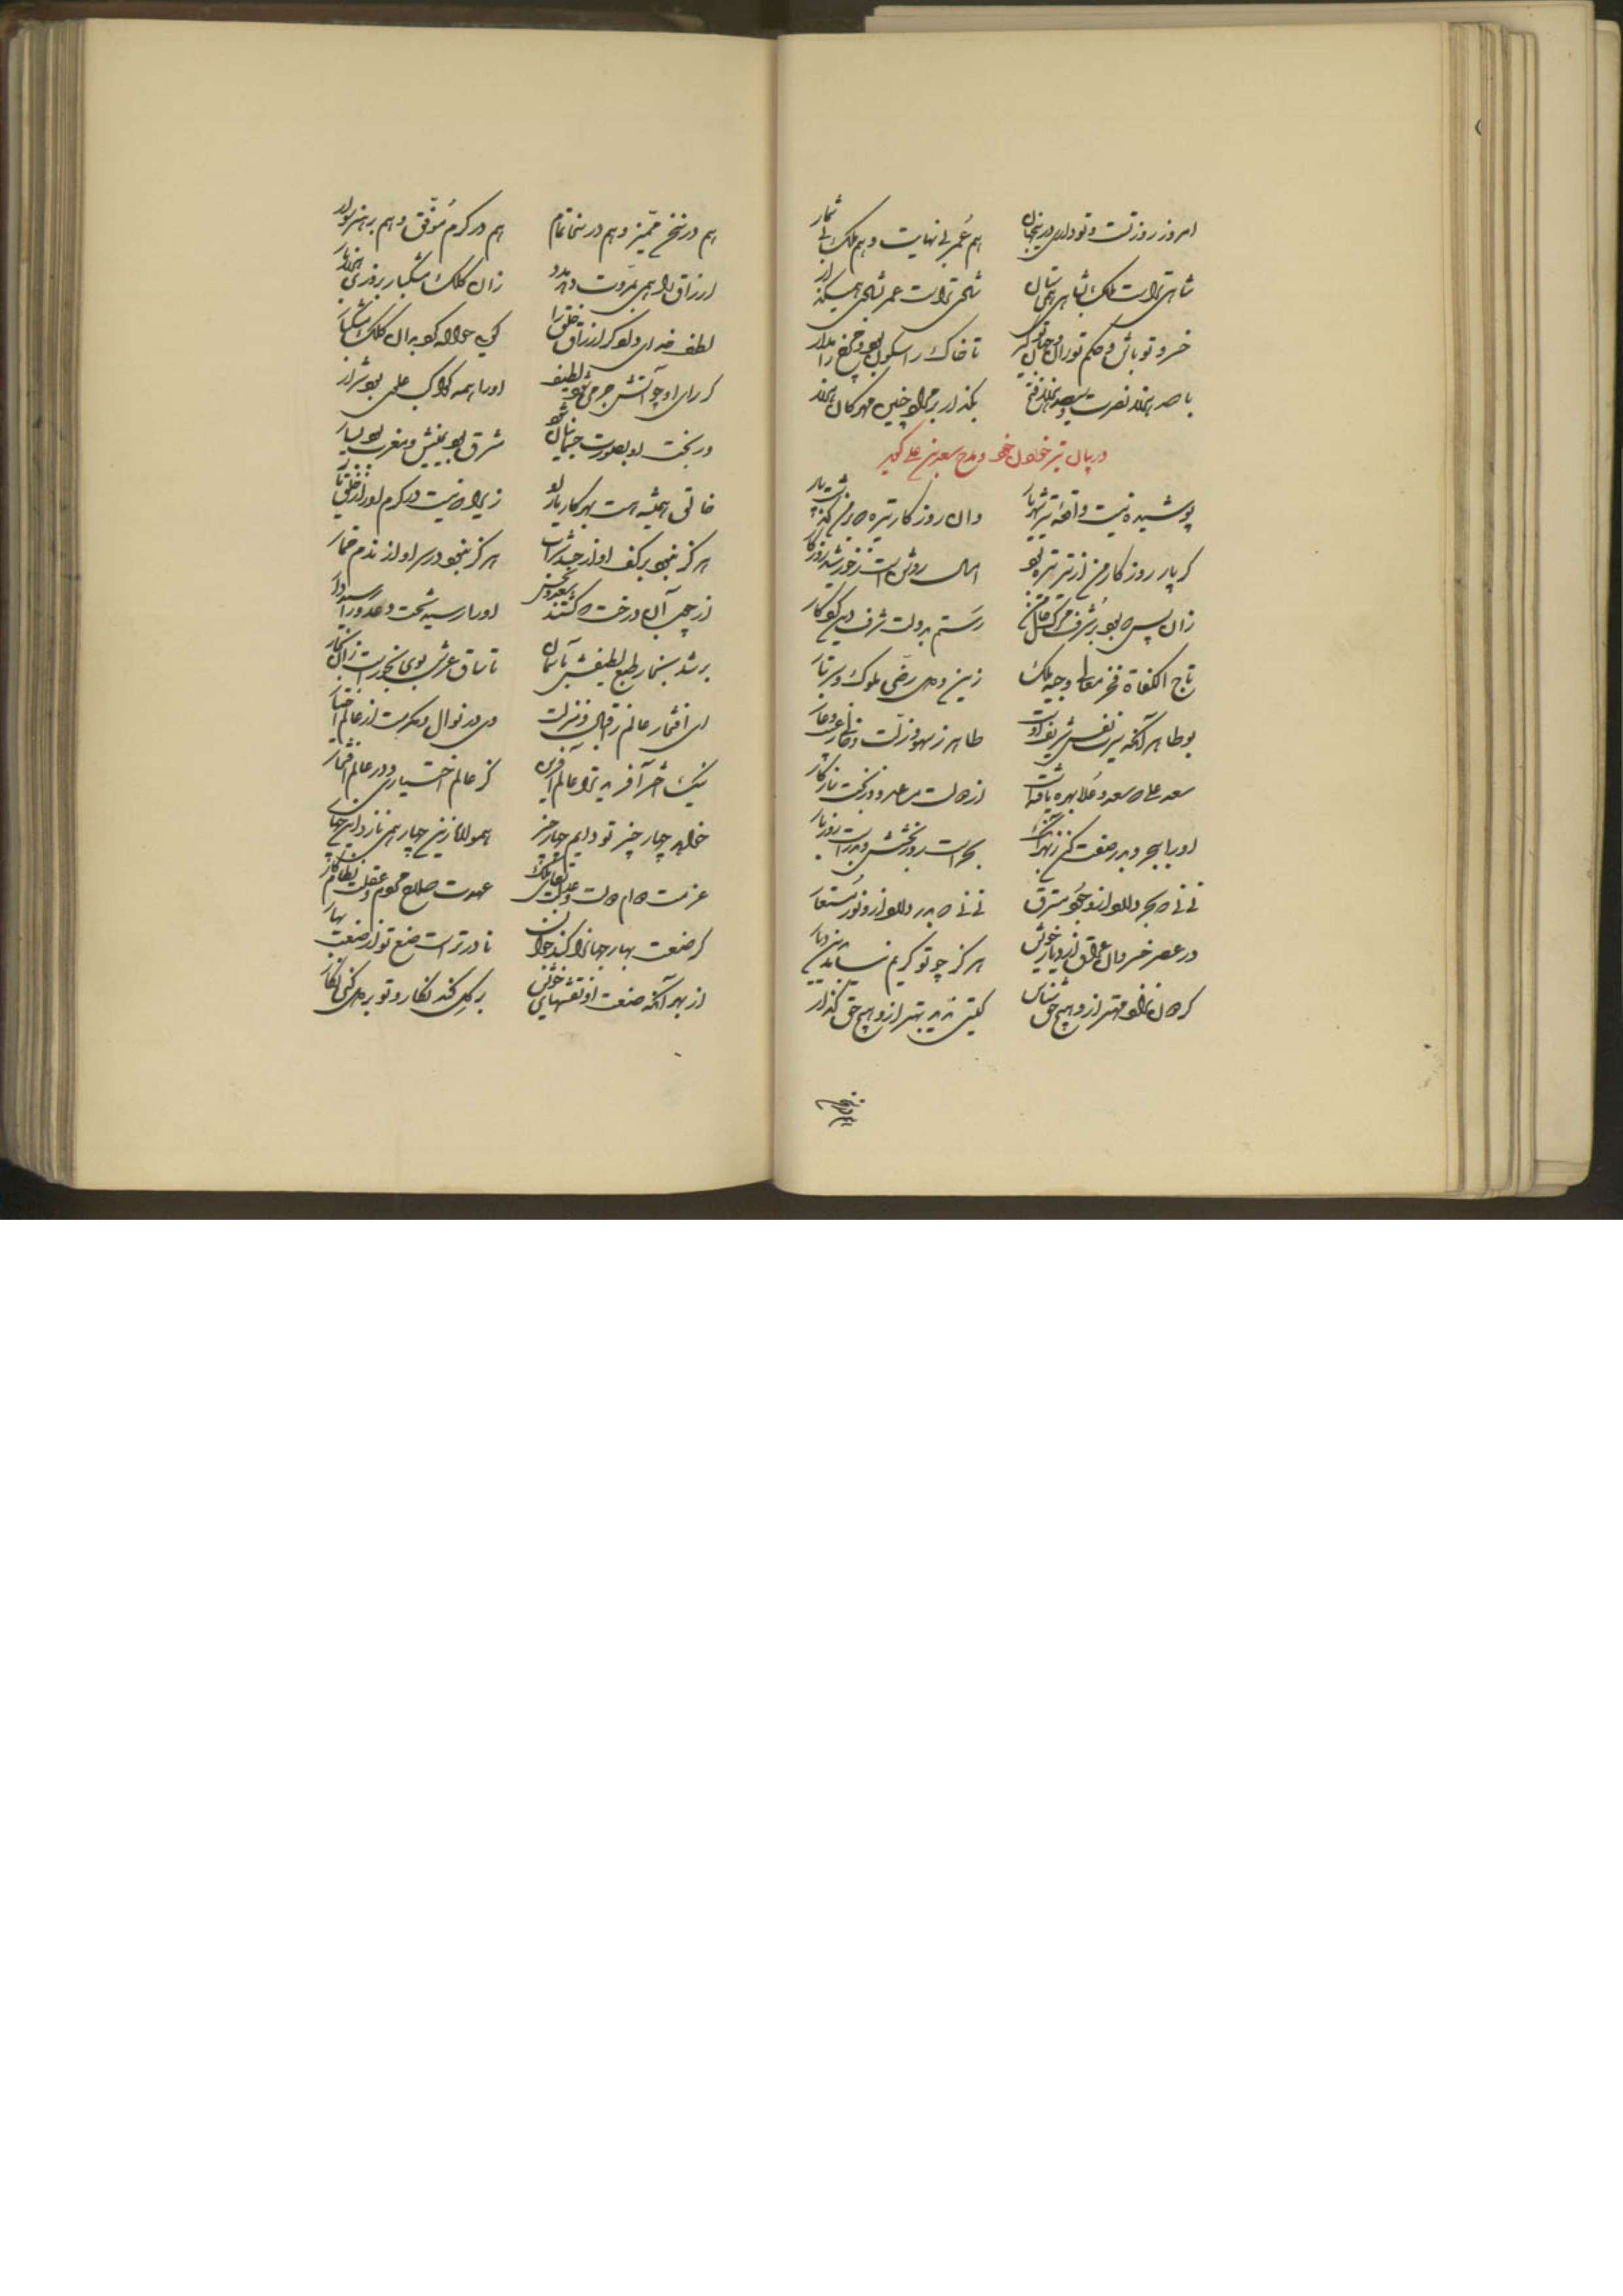 امروز روز تست و تو داری درین جهان
هم عمر بی نهایت و هم ملک بی شمار
شاهی تراست ملک بشاهی همی ستان
شادی تراست عمر بشادی همی گذار
خسرو تو باش و حکم تو ران و جهان تو گیر
تا خاک را سکون بود و چرخ را مدار
با صد هزار نصرت و سیصد هزار فتح
بگذار بر مراد چنین مهرگان هزار
در بیان تیر خوردن خود و مدح سعد بن علی گوید
پوشیده نیست واقعه تیر شهریار
وان روزگار تیره که بر من گذشت پار
گر پار روزگار من از تیر تیره بود
امسال روشن است ز خورشید روزگار
زان پس که بود بر شرف مرگ جان من
رستم بدولت شرف دین کردگار
تاج الکفاة فخر معالی وجیه ملک
زین دول رضی ملوک و سر تبار
بوطاهر آنکه سیرت نفس شریف اوست
طاهر ز سهو و زلت و خالی ز عیب و عار
سعد علی که سعد و علا بهره یافتست
از دولت مساعد و از بخت سازگار
او را ببحر و بدر صفت کن ز بهر آنک
بحر است روز بخشش و بدر است روز بار
نی نی که بحر دارد ازو جود مسترق
نی نی که بدر دارد ازو نور مستعار
در عصر خسروان عراق از دیار خویش
هرگز چو تو کریم نیامد بدین دیار
گردون نزاد مهتر ازو هیچ حق شناس
گیتی ندید بهتر ازو هیچ حق گذار
هم در سخن
هم در سخن ممیز و هم در سخا تمام
هم در کرم موفق و هم بر هنر سوار
ارزاق را همی بمروت دهد مدد
زان کلک مشکبار بروزی هزار بار
لطف خدای داد گر ارزاق خلق را
گویی حواله کرد بدان کلک مشکبار
گر رای او چو آتش جرمی شود لطیف
او را همه کواکب علوی بود شرار
ور بخت او بصورت جسمانیان شود
شرق بود یمینش و مغرب بود یسار
خالق همیشه هست بهر کار یار او
زیرا که نیست در کرم او را ز خلق یار
هرگز نبود بر کف او از جسد شراب
هرگز نبود در سر او از ندم خمار
از چوب آن درخت که گشتند سعد و نحس
او را رسید تخت و عدو را رسید دار
بر شد بسی بخار طبع لطیفش بآسمان
تا ساق عرش بوی بخور است زان بخار
ای افتخار عالم ز اقبال و منزلت
وی در نوال و مکرمت از عالم اختیار
نیک اختر آفرید ترا عالم آفرین
کز عالم اختیاری و در عالم افتخار
خواهد چهار چیز تو دایم چهار چیز
همواره زین چهار همی نازد این چهار
عزمت دوام دولت و عدلت بقای ملک
عهدت صلاح مردم و عقلت نظام کار
گر صنعت بهار جهان را کند جوان
نادرتر است صنع تو از صنعت بهار
از بهر آنکه صنعت او نقشهای خوش
بر گل کند نگار و تو بر دل کنی نگار